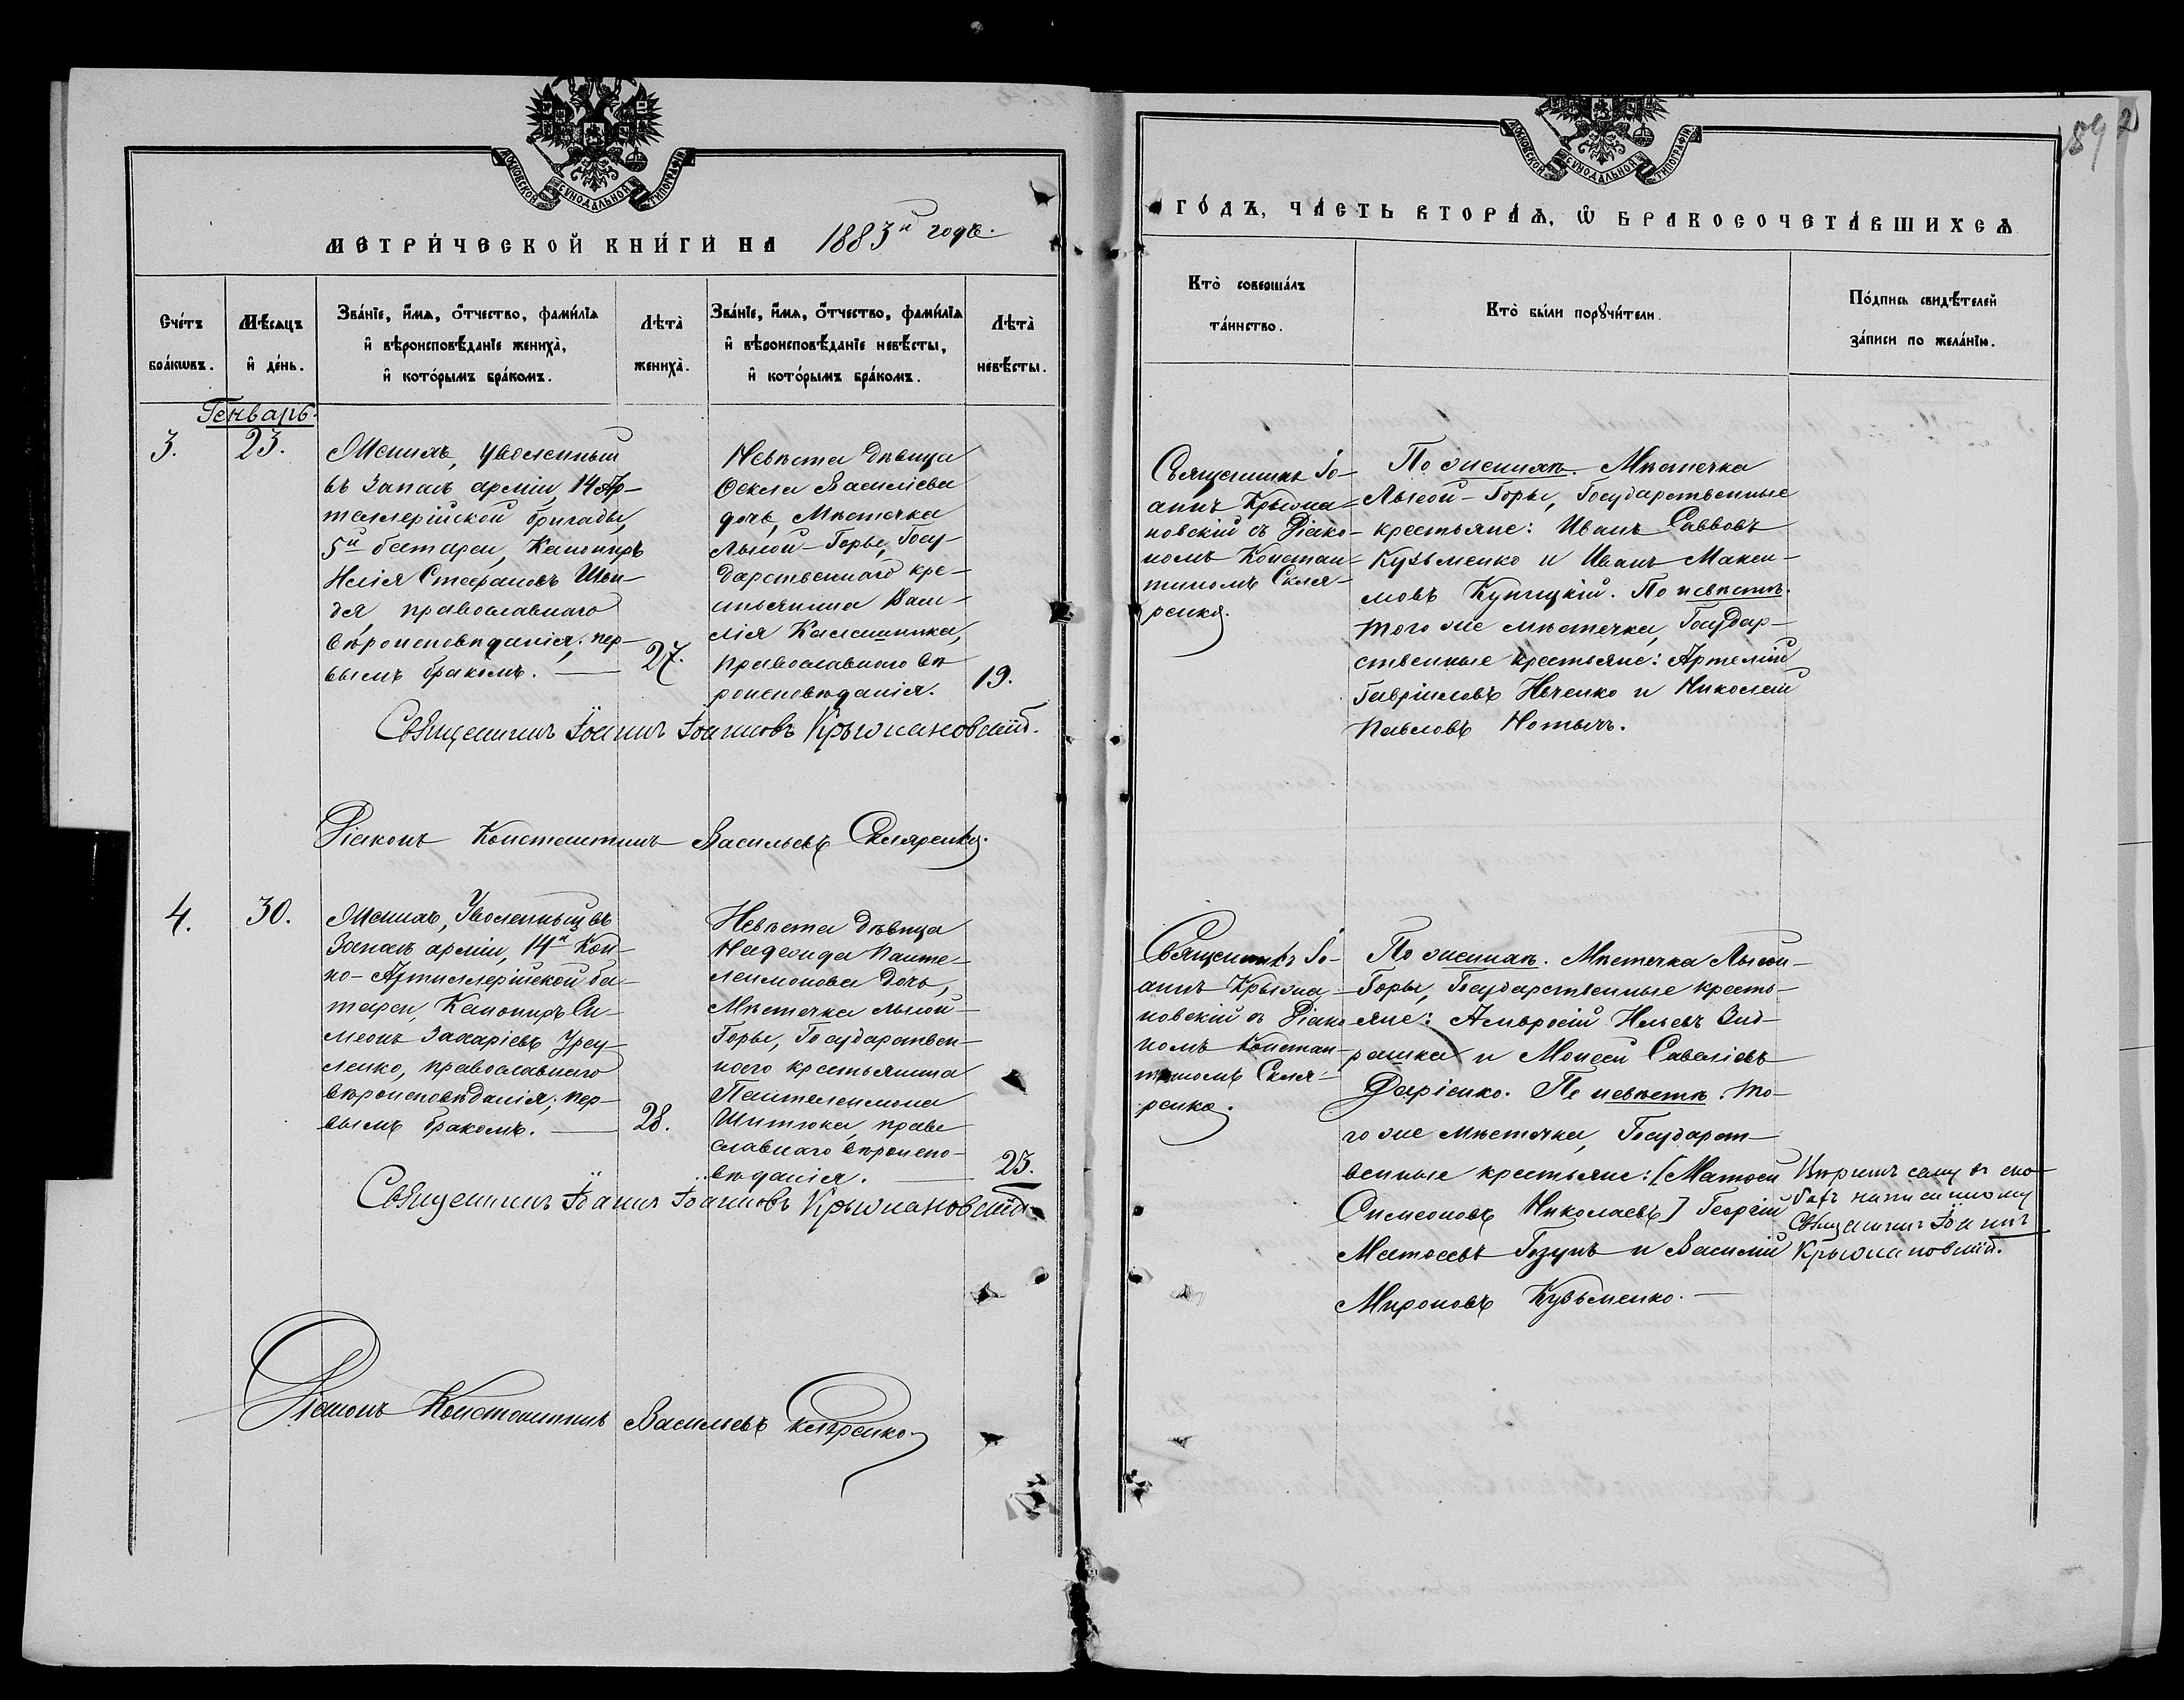 МОСКОВСКОЙ СѴНОДАЛЬНОЙ ТИПОГРАФІИ
МЕТРИ́ЧЕСКОЙ КНИ́ГИ НА 1883й годъ.
Сче́тъ бра́кωвъ.
Мѣ́сяцъ и҆ де́нь.
Зва́нїе, и҆́мѧ, ѻ҆́тчество, фами́лїѧ и҆ вѣроисповѣ́данїе жениха̀, и҆ кото́рымъ бра́комъ.
Лѣта̀ жениха̀.
Зва́нїе, и҆́мѧ, ѻ҆́тчество, фами́лїѧ и҆ вѣроисповѣ́данїе невѣ́сты, и҆ кото́рымъ бра́комъ.
Лѣта̀ невѣ́сты.
Генварь.
3.
23.
Женихъ, Уволенный
въ Запасъ арміи, 14 Ар-
тиллерійской бригады,
5й батареи, Канониръ
Илія Стефановъ
православнаго
вѣроисповѣданія; пер-
вымъ бракомъ. —
27.
Невѣста дѣвица
Ѳекла Василіева
дочь, Мѣстечка
Лысой-Горы, Госу-
дарственнаго кре-
стьянина Васи-
лія Калашника,
Православнаго вѣ
роисповѣданія.
19.
Священникъ Іоаннъ Іоанновъ Крыжановскій.
Діаконъ Константинъ Васильевъ Скляренко.
4.
30.
Женихъ, Уволенный въ
Запасъ арміи, 14й Кон-
но-Артиллерійской ба-
тареи, Канониръ Си-
меонъ Захаріевъ
православнаго
вѣроисповѣданія; пер-
вымъ бракомъ. —
28.
Невѣста дѣвица
Надежда Панте-
леимонова дочь,
Мѣстечка Лысой-
Горы, Государствен-
наго крестьянина
Пантелеимона
Шитюка, право
славнаго вѣроиспо-
вѣданія. —
23.
Священникъ Іоаннъ Іоанновъ Крыжановскій
Діаконъ Константинъ Васильевъ Скляренко
1892
МОСКОВСКОЙ СѴНОДАЛЬНОЙ ТИПОГРАФІИ
ГО́ДЪ, ЧА́СТЬ ВТОРА́Ѧ, Ѡ҆ БРАКОСОЧЕТА́ВШИХСѦ
Кто̀ соверша́лъ та́инство.
Кто̀ бы́ли порꙋчи́тели.
По́дпись свидѣ́телей за́писи по жела́нїю.
Священникъ Іо-
аннъ Крыжа-
новскій съ Діако-
номъ Констан-
тиномъ Скля-
ренко.
По женихѣ. Мѣстечка
Лысой-Горы, Государственные
крестьяне: Иванъ Саввовъ
Кузьменко и Иванъ Макси-
мовъ Купицкій. По невѣстѣ.
того же мѣстечка, Государ-
ственные крестьяне: Артемій
Гавріиловъ Ивченко и Николай
Павловъ Нотычъ.
Священникъ Іо-
аннъ Крыжа-
новскій съ Діако
номъ Констан-
тиномъ Скля-
ренко.
По женихѣ. Мѣстечка Лысой-
Горы, Государственные кресть-
яне: Амвросій Ильевъ
и Моисей Савеліевъ
Даріенко. По невѣстѣ. то-
го же мѣстечка, Государст-
венные крестьяне: [Матѳей
Симеоновъ Николаевъ] Георгій
Матѳеевъ Гозунъ и Василій
Мироновъ Кузьменко. —
Вѣрить сему въ ско-
бахъ написанному
Священникъ Іоаннъ
Крыжановскій.